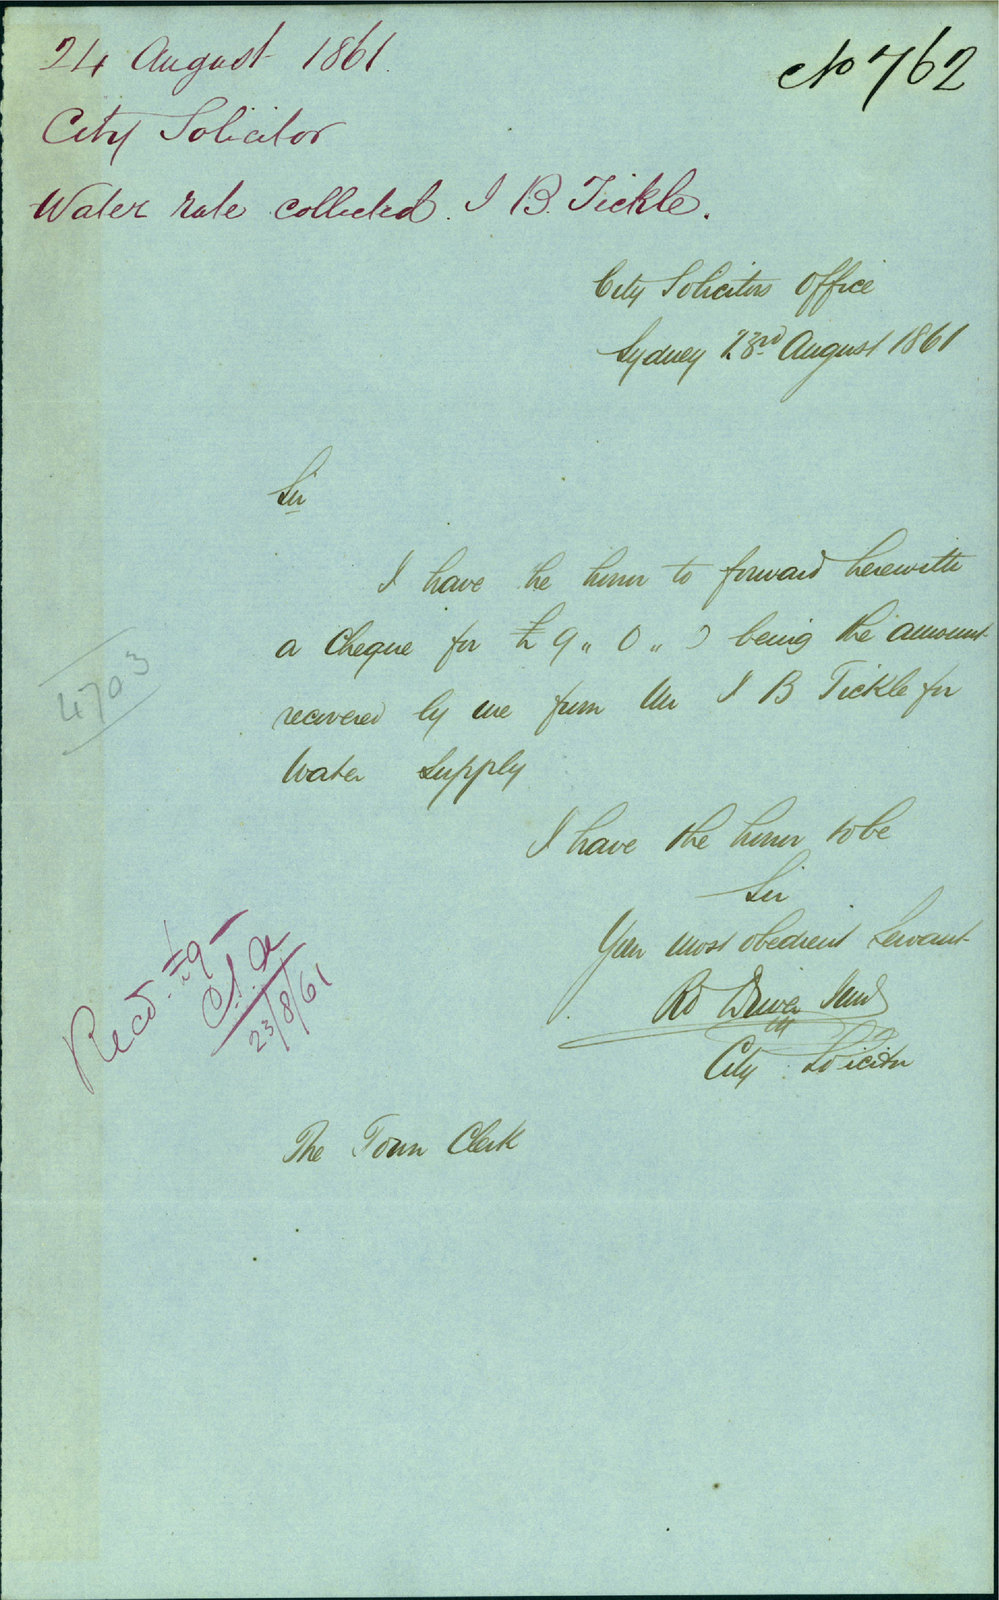 24 August 1861.
No 762
City Solicitor
Water rate collected. I B. Tickle.
City Solicitors Office
Sydney 23rd August 1861
Sir
I have the honor to forward herewith
a Cheque for £9 „ 0 „ 0 being the amount
recovered by me from Mr I B Tickle for
Water Supply
I have the honor to be
Sir
Your most obedient Servant
Rd Driver Junr
City Solicitor
4703
Recd. £9 –
23/8/61
The Town Clerk